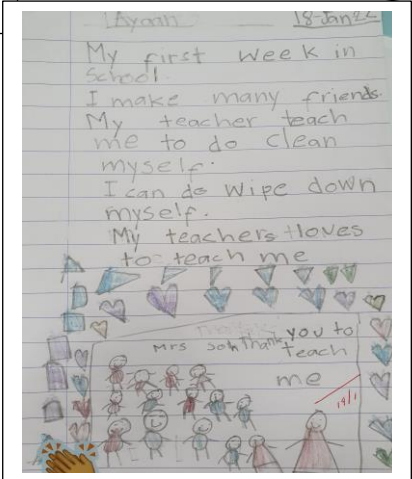 Ayaan
18-Jan 22
My first week in
School.
I make many friends.
My teacher teach
me to do clean
myself.
I can do wipe down
myself.
My teachers loves
to teach me
you to
Mrs Thank
teach
me
19/1